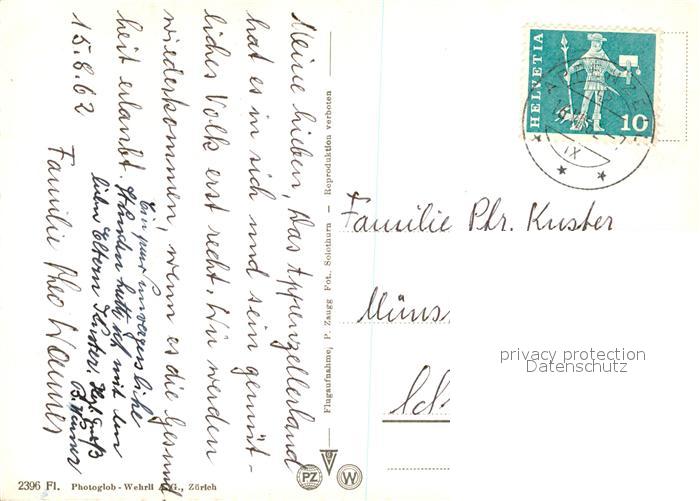 Meine Lieben, Das Appenzellerland
hat es in sich und sein gemüt-
liches Volk erst recht. Wir werden
wiederkommen, wenn es die Gesund-
heit erlaubt.
Ein paar unvergessliche
Stunden hatte ich mit den
lieben Eltern Kuster. Hzl. Gruß
15.8.62
Familie Theo Wanner
Flugaufnahme, P. Zaugg Fot., Solothurn – Reproduktion verboten
2396 Fl. Photoglob - Wehrli A.G., Zürich
PZ
W
HELVETIA
10
Familie Phr. Kuster
Müns
privacy protection
Datenschutz